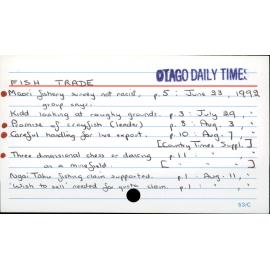 OTAGO DAILY TIMES
FISH TRADE
Maori fishery survey not racist, p.5 : June 23, 1992
group says.
Kidd looking at roughy grounds. p.3 : July 29, "
Promise of crayfish (leader) p.8 : Aug. 3, "
Careful handling for live export. p.10 : Aug. 7, "
[Country Times Suppl.]
Three dimensional chess or dancing p.11 : " "
as a minefield. [ " " ]
Ngai Tahu fishing claim supported. p.1 : Aug. 11, "
'Wish to sell' needed for quota claim. p.1 : " "
53/C